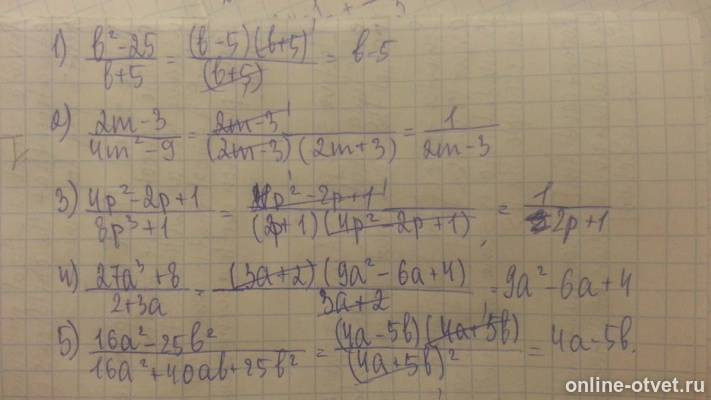 1) (b²-25)/(b+5) = ((b-5)(b+5))/((b+5)) = b-5
2) (2m-3)/(4m²-9) = (2m-3)/((2m-3)(2m+3)) = 1/(2m-3)
3) (4p²-2p+1)/(8p³+1) = (4p²-2p+1)/((2p+1)(4p²-2p+1)) = 1/(2p+1)
4) (27a³+8)/(2+3a) = ((3a+2)(9a²-6a+4))/(3a+2) = 9a²-6a+4
5) (16a²-25b²)/(16a²+40ab+25b²) = ((4a-5b)(4a+5b))/((4a+5b)²) = 4a-5b.
online-otvet.ru